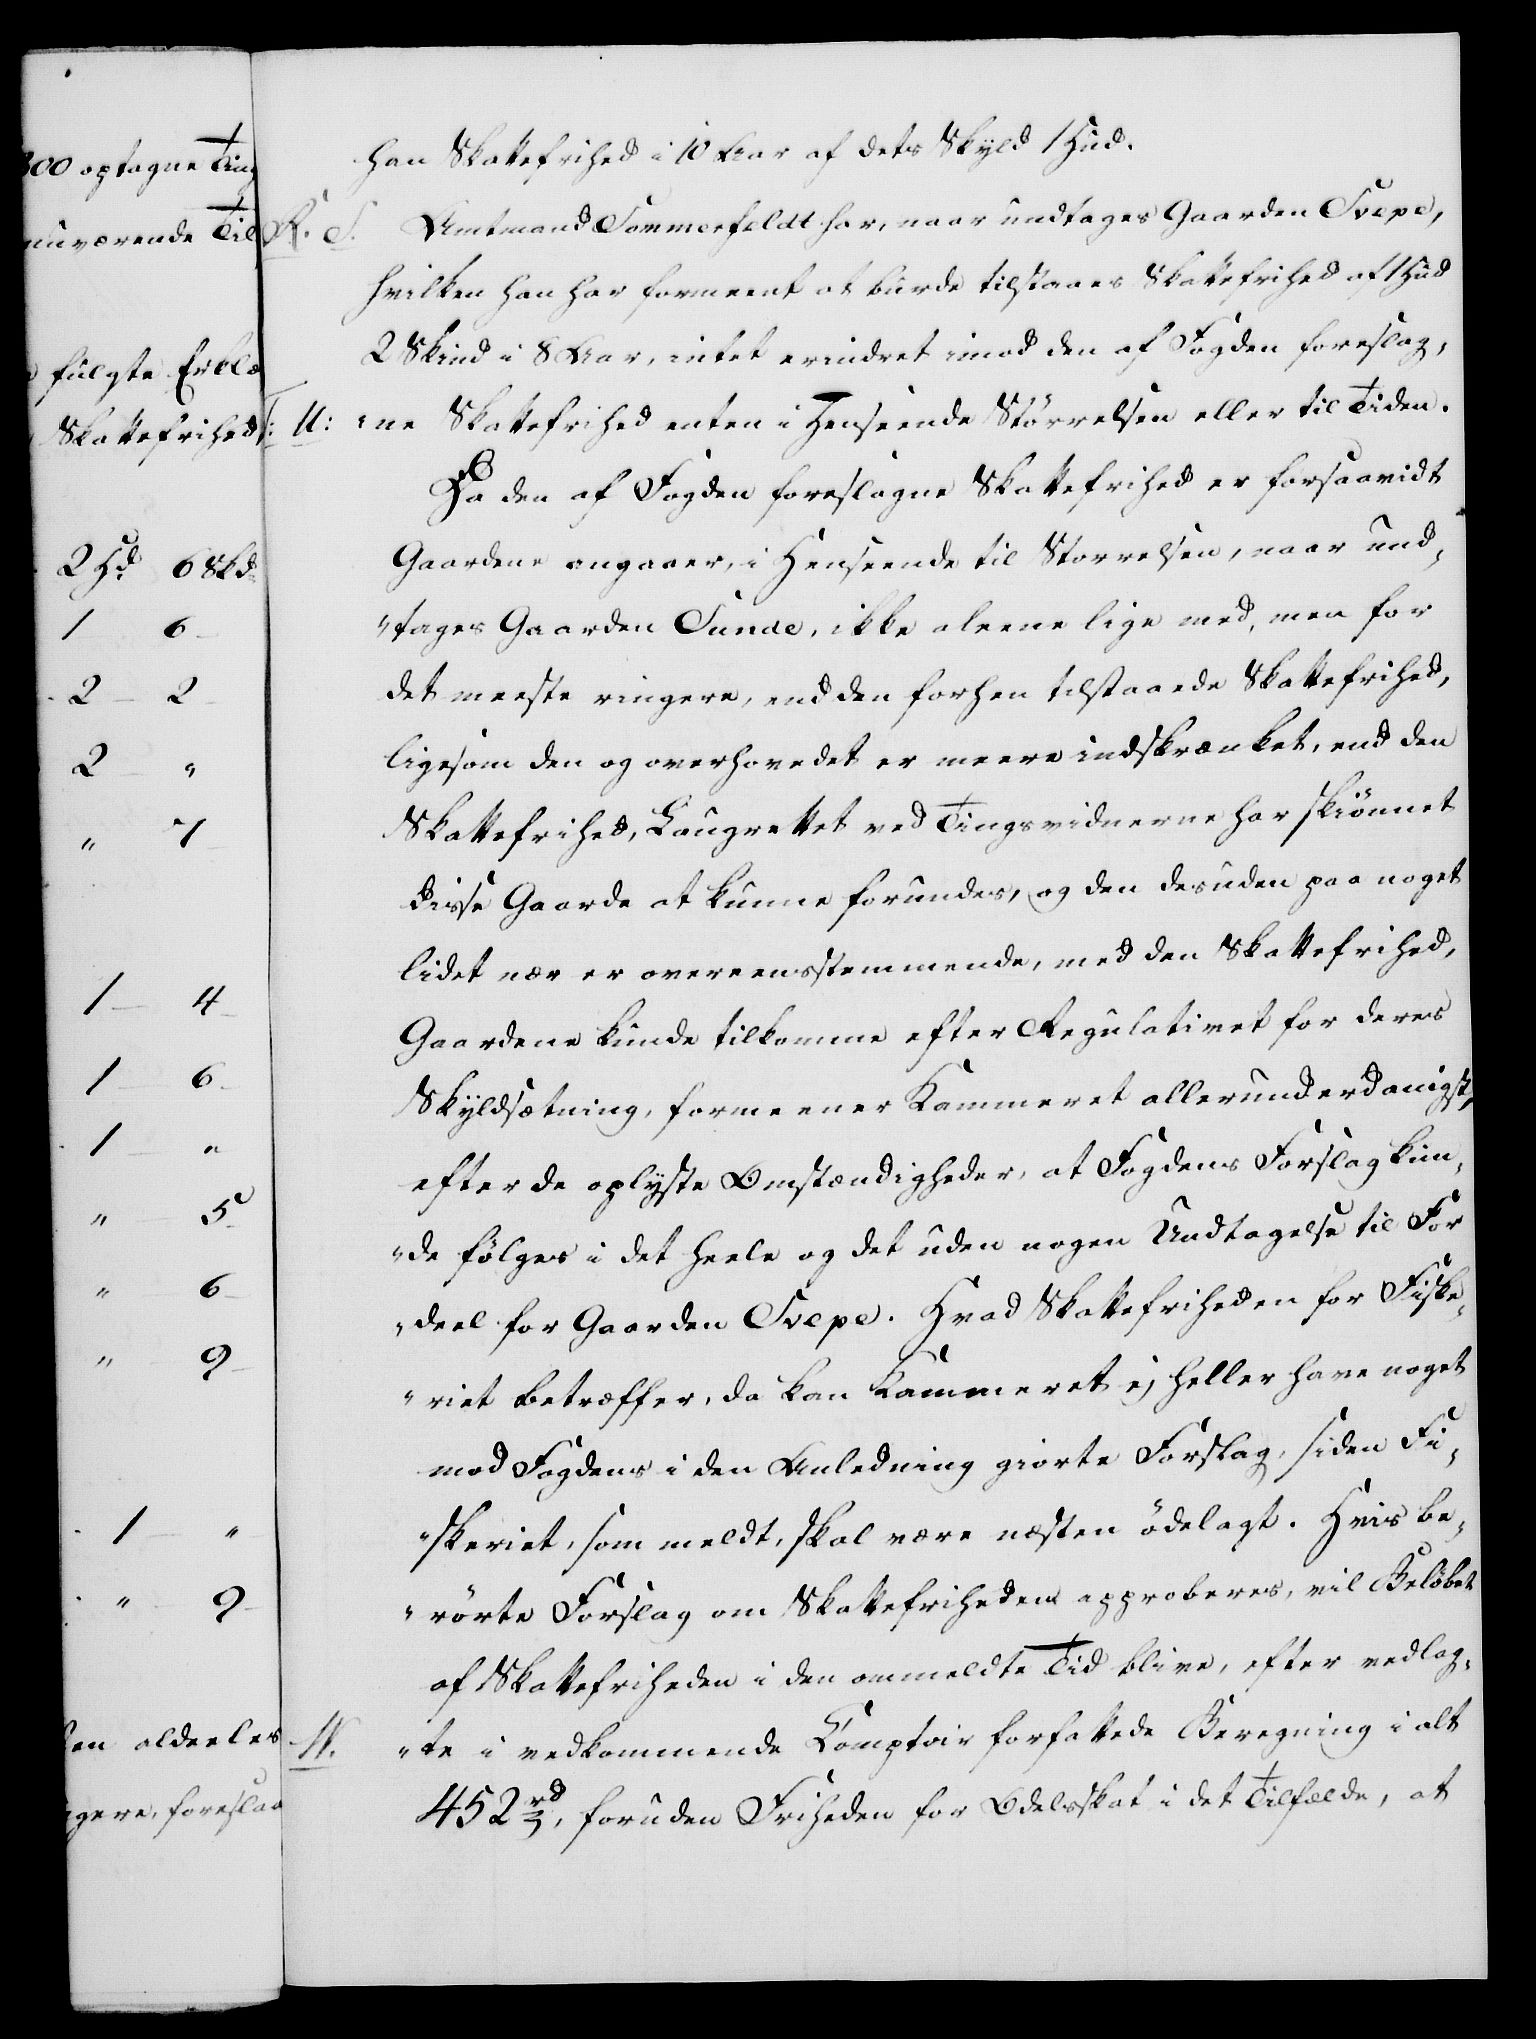 800 optagne Ting
nuværende Til
fulgte Erklæ
Skattefrihed
2 Hd. 6 Skd.
1 6
2 2
2 "
" 7
1 4
1 6
1 "
" 5
" 6
" 9
1 "
" 9
en aldeeles
gere, foreslaa
han Skattefrihed i 10 Aar af dets Skyld 1 Hud.
R. S. Amtmand Sommerfeldt har, naar undtages Gaarden Svepe,
hvilken han har formeent at burde tilstaaes Skattefrihed af 1 Hud
2 Skind i 8 Aar, intet erindret imod den af Fogden foreslag-
T: U: "ne Skattefrihed enten i Henseende Störrelsen eller til Tiden.
Da den af Fogden foreslagne Skattefrihed er forsaavidt
Gaardene angaaer, i Henseende til Storrelsen, naar und-
"tages Gaarden Sunde, ikke aleene lige med, men for
det meeste ringere, end den forhen tilstaaede Skattefrihed,
ligesom den og overhovedet er meere indskrænket, end den
Skattefrihed, Laugrettet ved Tingsvidnerne har skiönnet
disse Gaarde at kunne forundes, og den desuden paa noget
lidet nær er overeensstemmende, med den Skattefrihed,
Gaardene kunde tilkomme efter Regulativet for deres
Skyldsætning, formeener Kammeret allerunderdanigst,
efter de oplyste Omstændigheder, at Fogdens Forslag kun-
"de fölges i det heele og det uden nogen Undtagelse til For
"deel for Gaarden Svepe. Hvad Skattefriheden for Fiske-
"riet betræffer, da kan Kammeret ej heller have noget
mod Fogdens i den Anledning giorte Forslag, siden Fi-
"skeriet, som meldt, skal være næsten ödelagt. Hvis be-
"rörte Forslag om Skattefriheden approberes, vil Belöbet
af Skattefriheden i den ommeldte Tid blive, efter vedlag-
W. "te i vedkommende Comptoir forfattede Beregning i alt
452 rd, foruden Friheden for Odelsskat i det Tilfælde, at